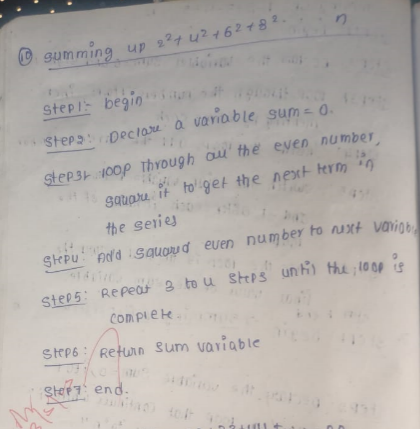 10 summing up 2²+4²+6²+8². n
Step1:- begin
Step2: Declare a variable sum = 0.
Step3: loop through all the even number,
square it to get the next term in
the series
Step4: Add squared even number to next variab
Step5: Repeat 3 to 4 steps until the loop is
complete.
Step6: Return sum variable
Step7: end.